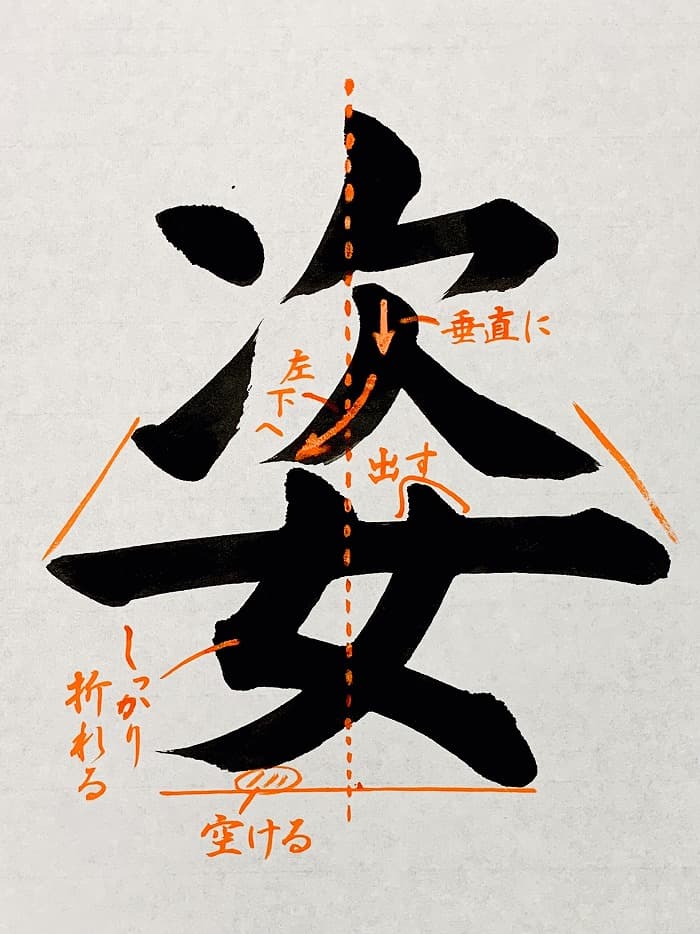 姿
垂直に
左下へ
出す
しっかり
折れる
空ける